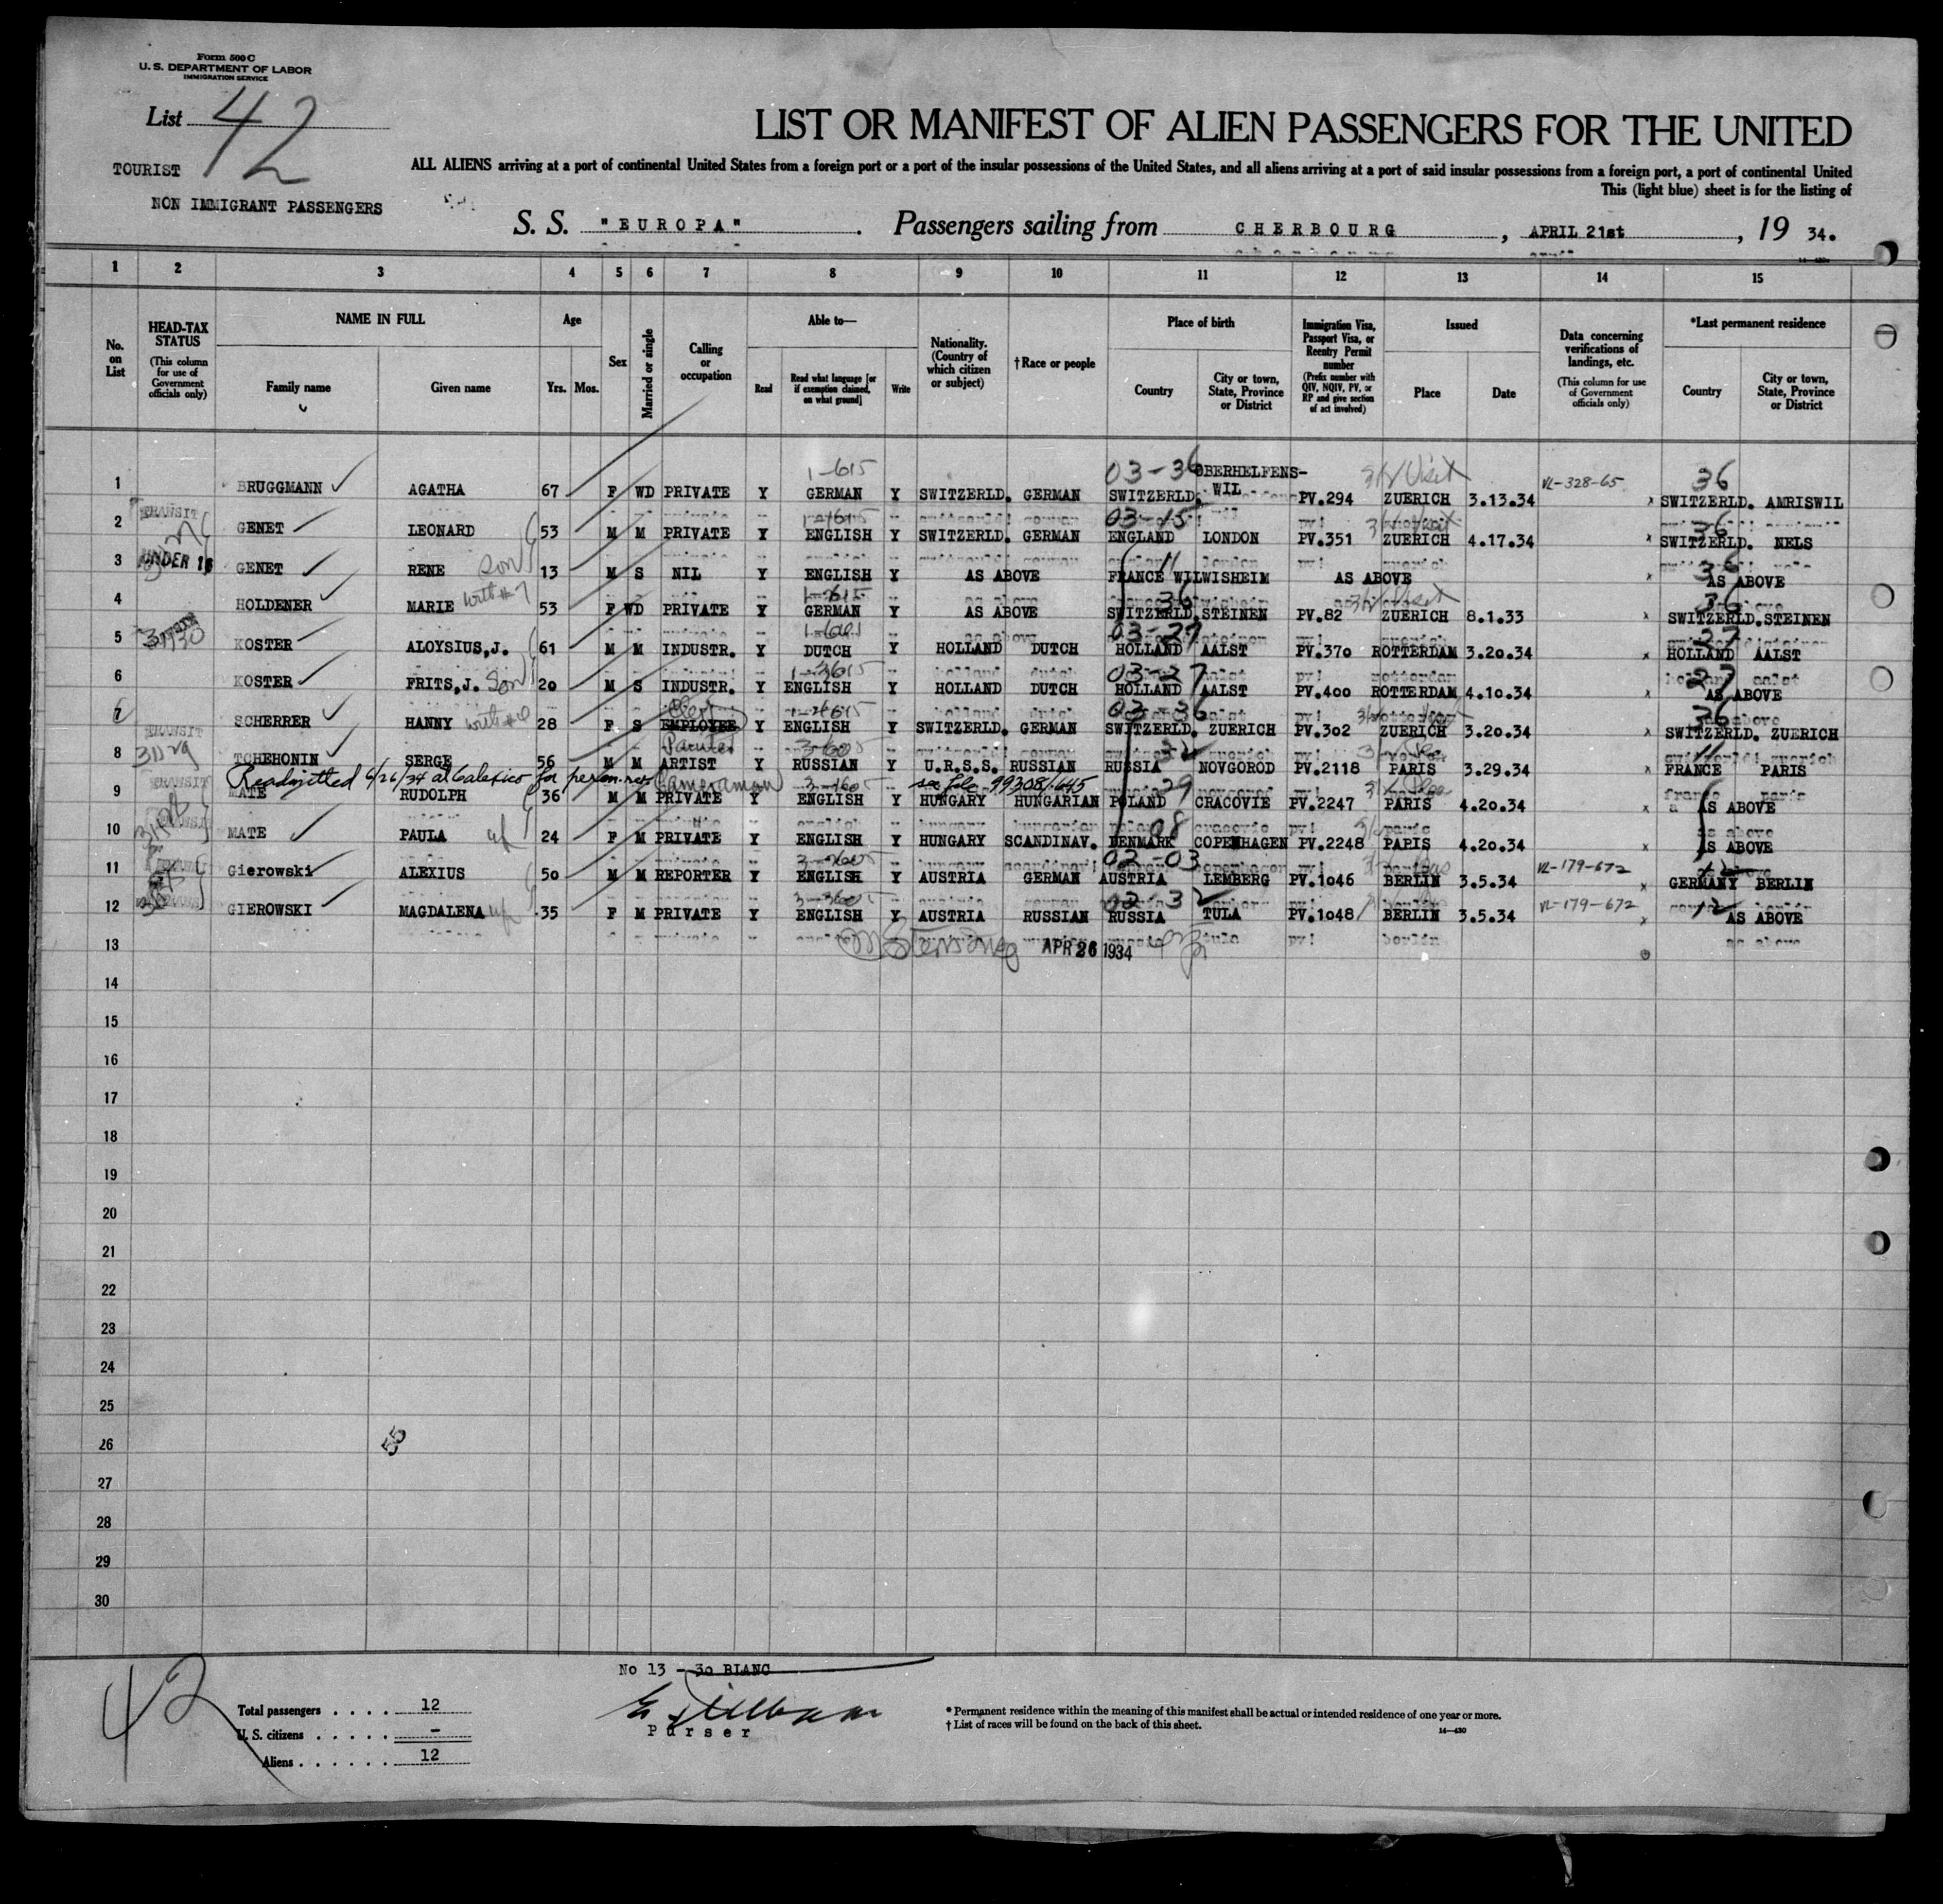 Form 500 C
U. S. DEPARTMENT OF LABOR
IMMIGRATION SERVICE
List 42
LIST OR MANIFEST OF ALIEN PASSENGERS FOR THE UNITED
TOURIST
ALL ALIENS arriving at a port of continental United States from a foreign port or a port of the insular possessions of the United States, and all aliens arriving at a port of said insular possessions from a foreign port, a port of continental United
This (light blue) sheet is for the listing of
NON IMMIGRANT PASSENGERS
S. S. "EUROPA". Passengers sailing from CHERBOURG, APRIL 21st, 19 34.
1 2 3 4 5 6 7 8 9 10 11 12 13 14 15
No. on List
HEAD-TAX STATUS (This column for use of Government officials only)
NAME IN FULL
Family name
Given name
Age
Yrs. Mos.
Sex
Married or single
Calling or occupation
Able to—
Read
Read what language [or if exemption claimed, on what ground]
Write
Nationality. (Country of which citizen or subject)
† Race or people
Place of birth
Country
City or town, State, Province or District
Immigration Visa, Passport Visa, or Reentry Permit number (Prefix number with QIV, NQIV, PV, or RP and give section of act involved)
Issued
Place
Date
Data concerning verifications of landings, etc. (This column for use of Government officials only)
*Last permanent residence
Country
City or town, State, Province or District
1-615 03-36 OBERHELFENS- 36
1 BRUGGMANN AGATHA 67 F WD PRIVATE Y GERMAN Y SWITZERLD. GERMAN SWITZERLD. WIL PV.294 ZUERICH 3.13.34 VL-328-65 x SWITZERLD. AMRISWIL
TRANSIT 03-15 36
2 GENET LEONARD 53 M M PRIVATE Y ENGLISH Y SWITZERLD. GERMAN ENGLAND LONDON PV.351 ZUERICH 4.17.34 x SWITZERLD. NELS
3 UNDER 16 GENET RENE Son 13 M S NIL Y ENGLISH Y AS ABOVE FRANCE WILWISHEIM AS ABOVE x AS ABOVE
4 HOLDENER MARIE with #7 53 F WD PRIVATE Y GERMAN Y AS ABOVE SWITZERLD. STEINEN PV.82 ZUERICH 8.1.33 x SWITZERLD. STEINEN
03-27 27
5 KOSTER ALOYSIUS,J. 61 M M INDUSTR. Y DUTCH Y HOLLAND DUTCH HOLLAND AALST PV.370 ROTTERDAM 3.20.34 x HOLLAND AALST
03-27 27
6 KOSTER FRITS,J. Son 20 M S INDUSTR. Y ENGLISH Y HOLLAND DUTCH HOLLAND AALST PV.400 ROTTERDAM 4.10.34 x AS ABOVE
03-36 36
7 SCHERRER HANNY 28 F S EMPLOYEE Y ENGLISH Y SWITZERLD. GERMAN SWITZERLD. ZUERICH PV.302 ZUERICH 3.20.34 x SWITZERLD. ZUERICH
TRANSIT Painter
8 TCHEHONIN SERGE 56 M M ARTIST Y RUSSIAN Y U.R.S.S. RUSSIAN RUSSIA NOVGOROD PV.2118 PARIS 3.29.34 x FRANCE PARIS
Readmitted 6/26/34 at Calexico for perm. res Cameraman see file 99308/645
9 MATE RUDOLPH 36 M M PRIVATE Y ENGLISH Y HUNGARY HUNGARIAN POLAND CRACOVIE PV.2247 PARIS 4.20.34 x AS ABOVE
10 MATE PAULA wf 24 F M PRIVATE Y ENGLISH Y HUNGARY SCANDINAV. DENMARK COPENHAGEN PV.2248 PARIS 4.20.34 x AS ABOVE
02-03
11 Gierowski ALEXIUS 50 M M REPORTER Y ENGLISH Y AUSTRIA GERMAN AUSTRIA LEMBERG PV.1046 BERLIN 3.5.34 VL-179-672 x GERMANY BERLIN
02-32 12
12 GIEROWSKI MAGDALENA wf 35 F M PRIVATE Y ENGLISH Y AUSTRIA RUSSIAN RUSSIA TULA PV.1048 BERLIN 3.5.34 VL-179-672 x AS ABOVE
13 APR 26 1934
14
15
16
17
18
19
20
21
22
23
24
25
26 55
27
28
29
30
No 13 - 30 BLANC
42
Total passengers . . . . 12
U. S. citizens . . . . . -
Aliens . . . . . . 12
Purser
* Permanent residence within the meaning of this manifest shall be actual or intended residence of one year or more.
† List of races will be found on the back of this sheet. 14—430